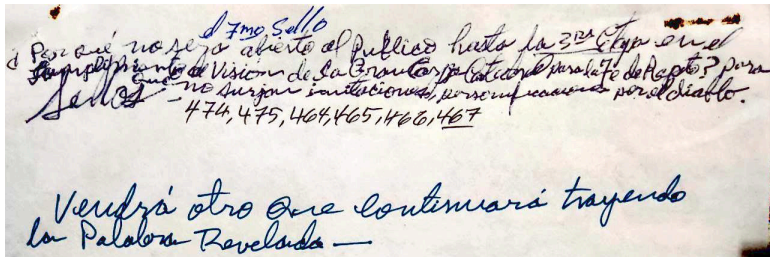 el 7mo Sello
¿Porqué no sera abierto al Publico hasta la 3ra Etapa en el
Cumplimiento de Vision de la Gran Carpa Catedral para la Fe de Rapto? para
Sellos que no surjan imitaciones, personificaciones por el diablo.
474, 475, 464, 465, 466, 467
Vendrá otro que continuará trayendo
la Palabra Revelada —